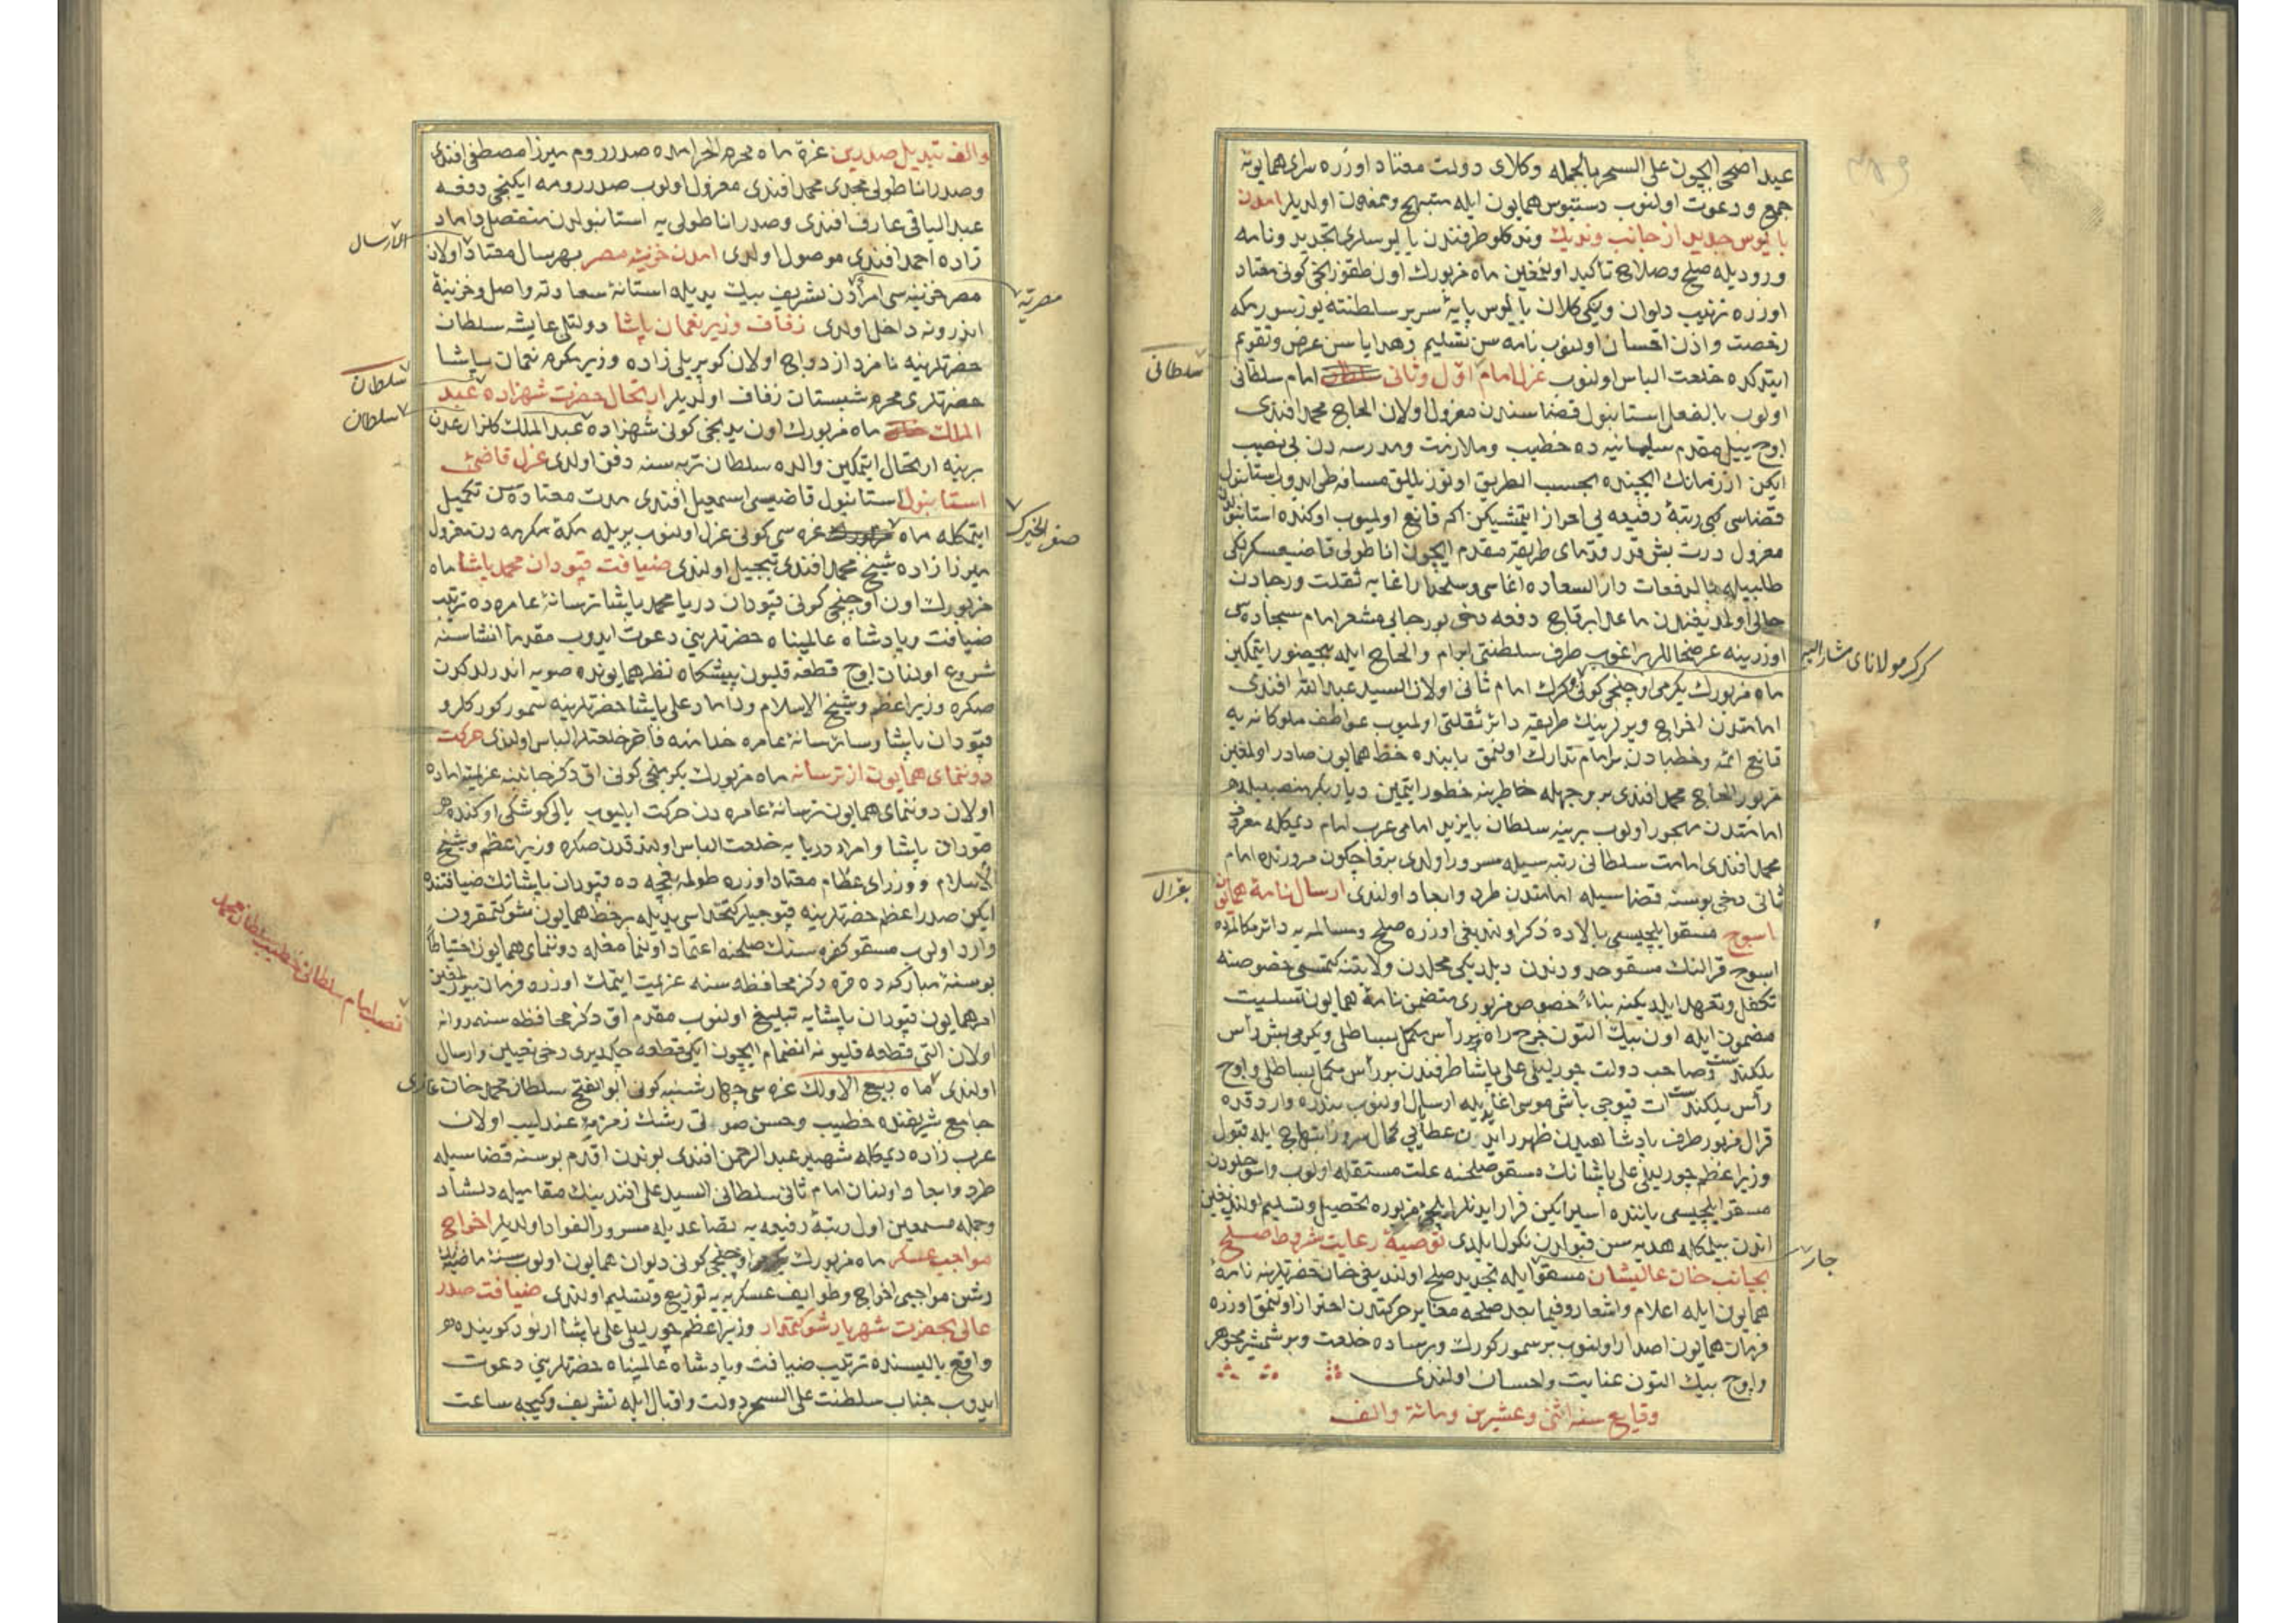 عيد اضحى ايچون على السحر بالجمله وكلاى دولت معتاد اوزره سراى همايونه
جمع ودعوت اولنوب دستبوس همايون ايله مبتهج وممنون اولديلر امدن
باليوس جديد از جانب ونديك وندكلو طرفندن باليوسلرى تجديد ونامه
وروديله صلح وصلاح تأكيد اولنمغين ماه مزبورك اون طقوزنجى كونى معتاد
اوزره ترتيب ديوان ويكى كلان باليوس پايۀ سرير سلطنته يوز سورمكه
رخصت واذن احسان اولنوب نامه سن تسليم وهداياسن عرض وتقويم
ايتدكده خلعت الباس اولنوب عزل امام اول وثانى امام سلطانى
سلطانى
اولوب بالفعل استانبول قضاسندن معزول اولان الحاج محمد افندى
اوچ ييل مقدم سليمانيه ده خطيب وملازمت ومدرسه دن بى نصيب
ايكن از زمانك ايچنده بحسب الطريق اوتوز ييللق مسافه طى ايدوب استانبول
قضاسى كبى رتبۀ رفيعه يى احراز ايتمشيكن اكا قانع اولميوب اوكنده استانبولدن
معزول درت بش قدر قدماى طريقدن مقدم ايچون اناطولى قاضيعسكرلكى
طلبيله بالدفعات دار السعاده اغاسى وسلحدار اغايه ثقلت ورجادن
خالى اولمديغندن ماعدا برقاج دفعه دخى بو رجايى مشعر امام سجاده سى
اوزرينه عرضحاللر براغوب طرف سلطنتى ابرام والحاح ايله بيحضور ايتمكين
كرك مولاناى مشار اليه
ماه مزبورك يكرمى اوچنجى كونى وكرك امام ثانى اولان السيد عبد الله افندى
امامتدن اخراج ويرلرينك طريقه دائر ثقلتى اولميوب عواطف ملوكانه يه
قانع ائمه وخطبادن برامام تدارك اولنمق بابنده خط همايون صادر اولمغين
مزبور الحاج محمد افندى بر وجهله خاطرينه خطور ايتمين ديار بكر منصبيله
امامتدن مهجور اولوب يرينه سلطان بايزيد امامى عرب امام ديمكله معروف
محمد افندى امامت سلطانى رتبه سيله مسرور اولدى برقاچ كون مرورنده امام
ثانى دخى بوسنه قضاسيله امامتدن طرد وابعاد اولندى ارسال نامۀ همايون
بقرال
اسوج مسقو ايلچيسى بالاده ذكر اولنديغى اوزره صلح ومسالمه يه دائر مكالمه ده
اسوج قرالنك مسقو حدودندن ديلديكى محلدن ولايتنه كيتمسى خصوصنه
تكفل وتعهد ايلديكنه بناء خصوص مزبورى متضمن نامۀ همايون تسليت
مضمون ايله اون بيك التون خرج راه وبر رأس مكمل بساطلى ويكرمى بش رأس
يلكندست وصاحب دولت چورليلى على پاشا طرفندن بر رأس مكمل بساطلى واوچ
رأس يلكندست ات قپوجى باشى موسى اغا يديله ارسال اولنوب بندره وارد قده
قرال مزبور طرف پادشاهيدن ظهور ايدن عطايى كمال سرور وابتهاج ايله قبول
وزير اعظم چورليلى على پاشانك مسقو صلحنه علت مستقله اولوب
مسقو ايلچيسى ياننده اسير ايكين فرار ايدنلر ايلچئ مزبوره تحصيل وتسليم اولنديغين
اندن بيلمكله هديه سن قبولدن نكول ايلدى توصيۀ رعايت شروط صلح
جار
بجانب خان عاليشان مسقو ايله تجديد صلح اولنديغى خان حضرتلرينه نامۀ
همايون ايله اعلام واشعار وفيما بعد صلحه مغاير حركتدن احتراز اولنمق اوزره
فرمان همايون اصدار اولنوب بر سمور كورك وبر ساده خلعت وبر شمشير مجوهر
واوچ بيك التون عنايت واحسان اولندى
وقايع سنه اثنى وعشرين ومائة والف
والف تبديل صدرين غرۀ ماه محرم الحرامده صدر روم ميرزا مصطفى افندى
وصدر اناطولى مجدى محمد افندى معزول اولوب صدر رومه ايكنجى دفعه
عبد الباقى عارف افندى وصدر اناطولى يه استانبولدن منفصل داماد
زاده احمد افندى موصول اولدى امدن خزينۀ مصر بهر سال معتاد اولان
الارسال
مصر خزينه سى امرادن شريف بيك يديله استانۀ سعادته واصل وخزينۀ
مصريه
اندرونه داخل اولدى زفاف وزير نعمان پاشا دولتلى عايشه سلطان
حضرتلرينه نامزد ازدواج اولان كوپريلى زاده وزير مكرم نعمان پاشا
سلطان
حضرتلرى محرم شبستان زفاف اولديلر ارتحال حضرت شهزاده عبد
الملك خان ماه مزبورك اون يدنجى كونى شهزاده عبد الملك كلزار عدن
سلطان
برينه ارتحال ايتمكين والده سلطان تربه سنه دفن اولندى عزل قاضئ
استانبول استانبول قاضيسى اسمعيل افندى مدت معتاده سن تكميل
ايتمكله ماه غره سى كونى عزل اولنوب يريله مكۀ مكرمه دن معزول
صفر الخيرك
ميرزا زاده شيخ محمد افندى تبجيل اولندى ضيافت قپودان محمد پاشا ماه
مزبورك اون اوچنجى كونى قپودان دريا محمد پاشا ترسانۀ عامره ده ترتيب
ضيافت وپادشاه عالمپناه حضرتلرينى دعوت ايدوب مقدما انشاسنه
شروع اولنان اوچ قطعه قليون پيشكاه نظر همايونده صويه اندرلدكدن
صكره وزير اعظم وشيخ الاسلام وداماد على پاشا حضرتلرينه سمور كوركلر و
قپودان پاشا وسائر ترسانۀ عامره خدامنه فاخر خلعتلر الباس اولندى حركت
دونمماى همايون از ترسانه ماه مزبورك يكرمنجى كونى اق دكز جانبنه عزيمته اماده
اولان دونمماى همايون ترسانۀ عامره دن حركت ايليوب يالى كوشكى اوكنده
قپودان پاشا وامراء دريايه خلعت الباس اولندقدن صكره وزير اعظم وشيخ
الاسلام ووزراى عظام معتاد اوزره طولمه بغچه ده قپودان پاشانك ضيافتنده
ايكن صدر اعظم حضرتلرينه قپوجيلر كتخداسى يديله بر خط همايون شوكتمقرون
وارد اولوب مسقو كفره سنك صلحنه اعتماد اولنمامغله دونمماى همايون احتياطا
بو سنۀ مباركه ده قره دكز محافظه سنه عزيمت ايتمك اوزره فرمان بيورلمغين
امر همايون قپودان پاشايه تبليغ اولنوب مقدم اق دكز محافظه سنه روانه
اولان التى قطعه قليونه انضمام ايچون ايكى قطعه چكديرى دخى تعيين وارسال
اولندى ماه ربيع الاولك غره سى چهارشنبه كونى ابو الفتح سلطان محمد خان غازى
نصب امام سلطانى خطيب سلطان محمد
جامع شريفنده خطيب وحسن صوتى رشك زمزمۀ عندليب اولان
عرب زاده ديمكله شهير عبد الرحمن افندى بوندن اقدم بوسنه قضاسيله
طرد وابعاد اولنان امام ثانى سلطانى السيد على افندينك مقاميله دلشاد
وجمله مستمعين اول رتبۀ رفيعه يه تصاعديله مسرور الفؤاد اولديلر اخراج
مواجب عسكر ماه مزبورك اوچنجى كونى ديوان همايون اولوب سنۀ ماضيه
رشن مواجبى اخراج وطوايف عسكريه يه توزيع وتسليم اولندى ضيافت صدر
عالى بحضرت شهريار شوكتمدار وزير اعظم چورليلى على پاشا ارنود كوينده
واقع ياليسنده ترتيب ضيافت وپادشاه عالمپناه حضرتلرينى دعوت
ايدوب جناب سلطنت على السحر دولت واقبال ايله تشريف وكيجه ساعت